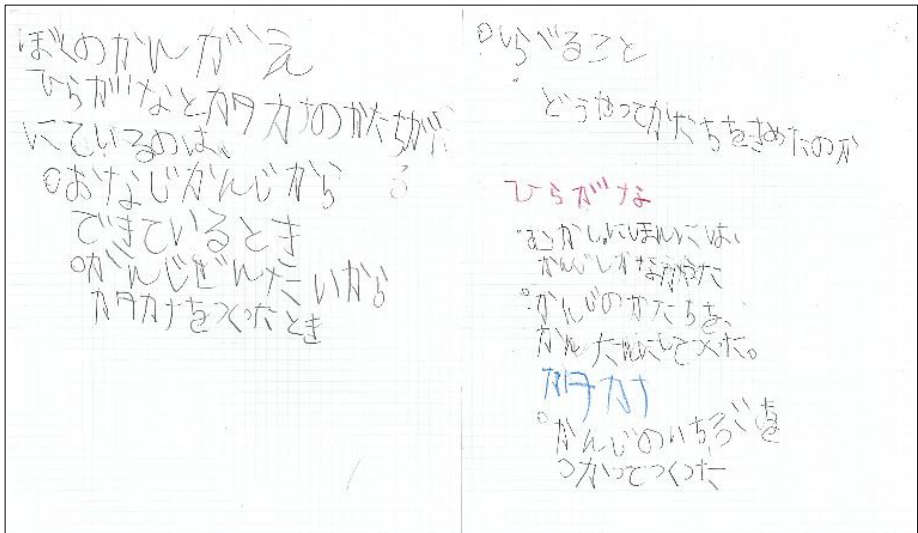 ぼくのかんがえ
ひらがなとカタカナのかたちが
にているのは、
○おなじかんじから
できているとき
○かんじぜんたいから
カタカナをつくったとき
○しらべること
どうやってかたちをきめたのか
ひらがな
○むかし、にほんには、
かんじしかなかった
○かんじのかたちを、
かんたんにしてつくった。
カタカナ
○かんじのいちぶを
つかってつくった